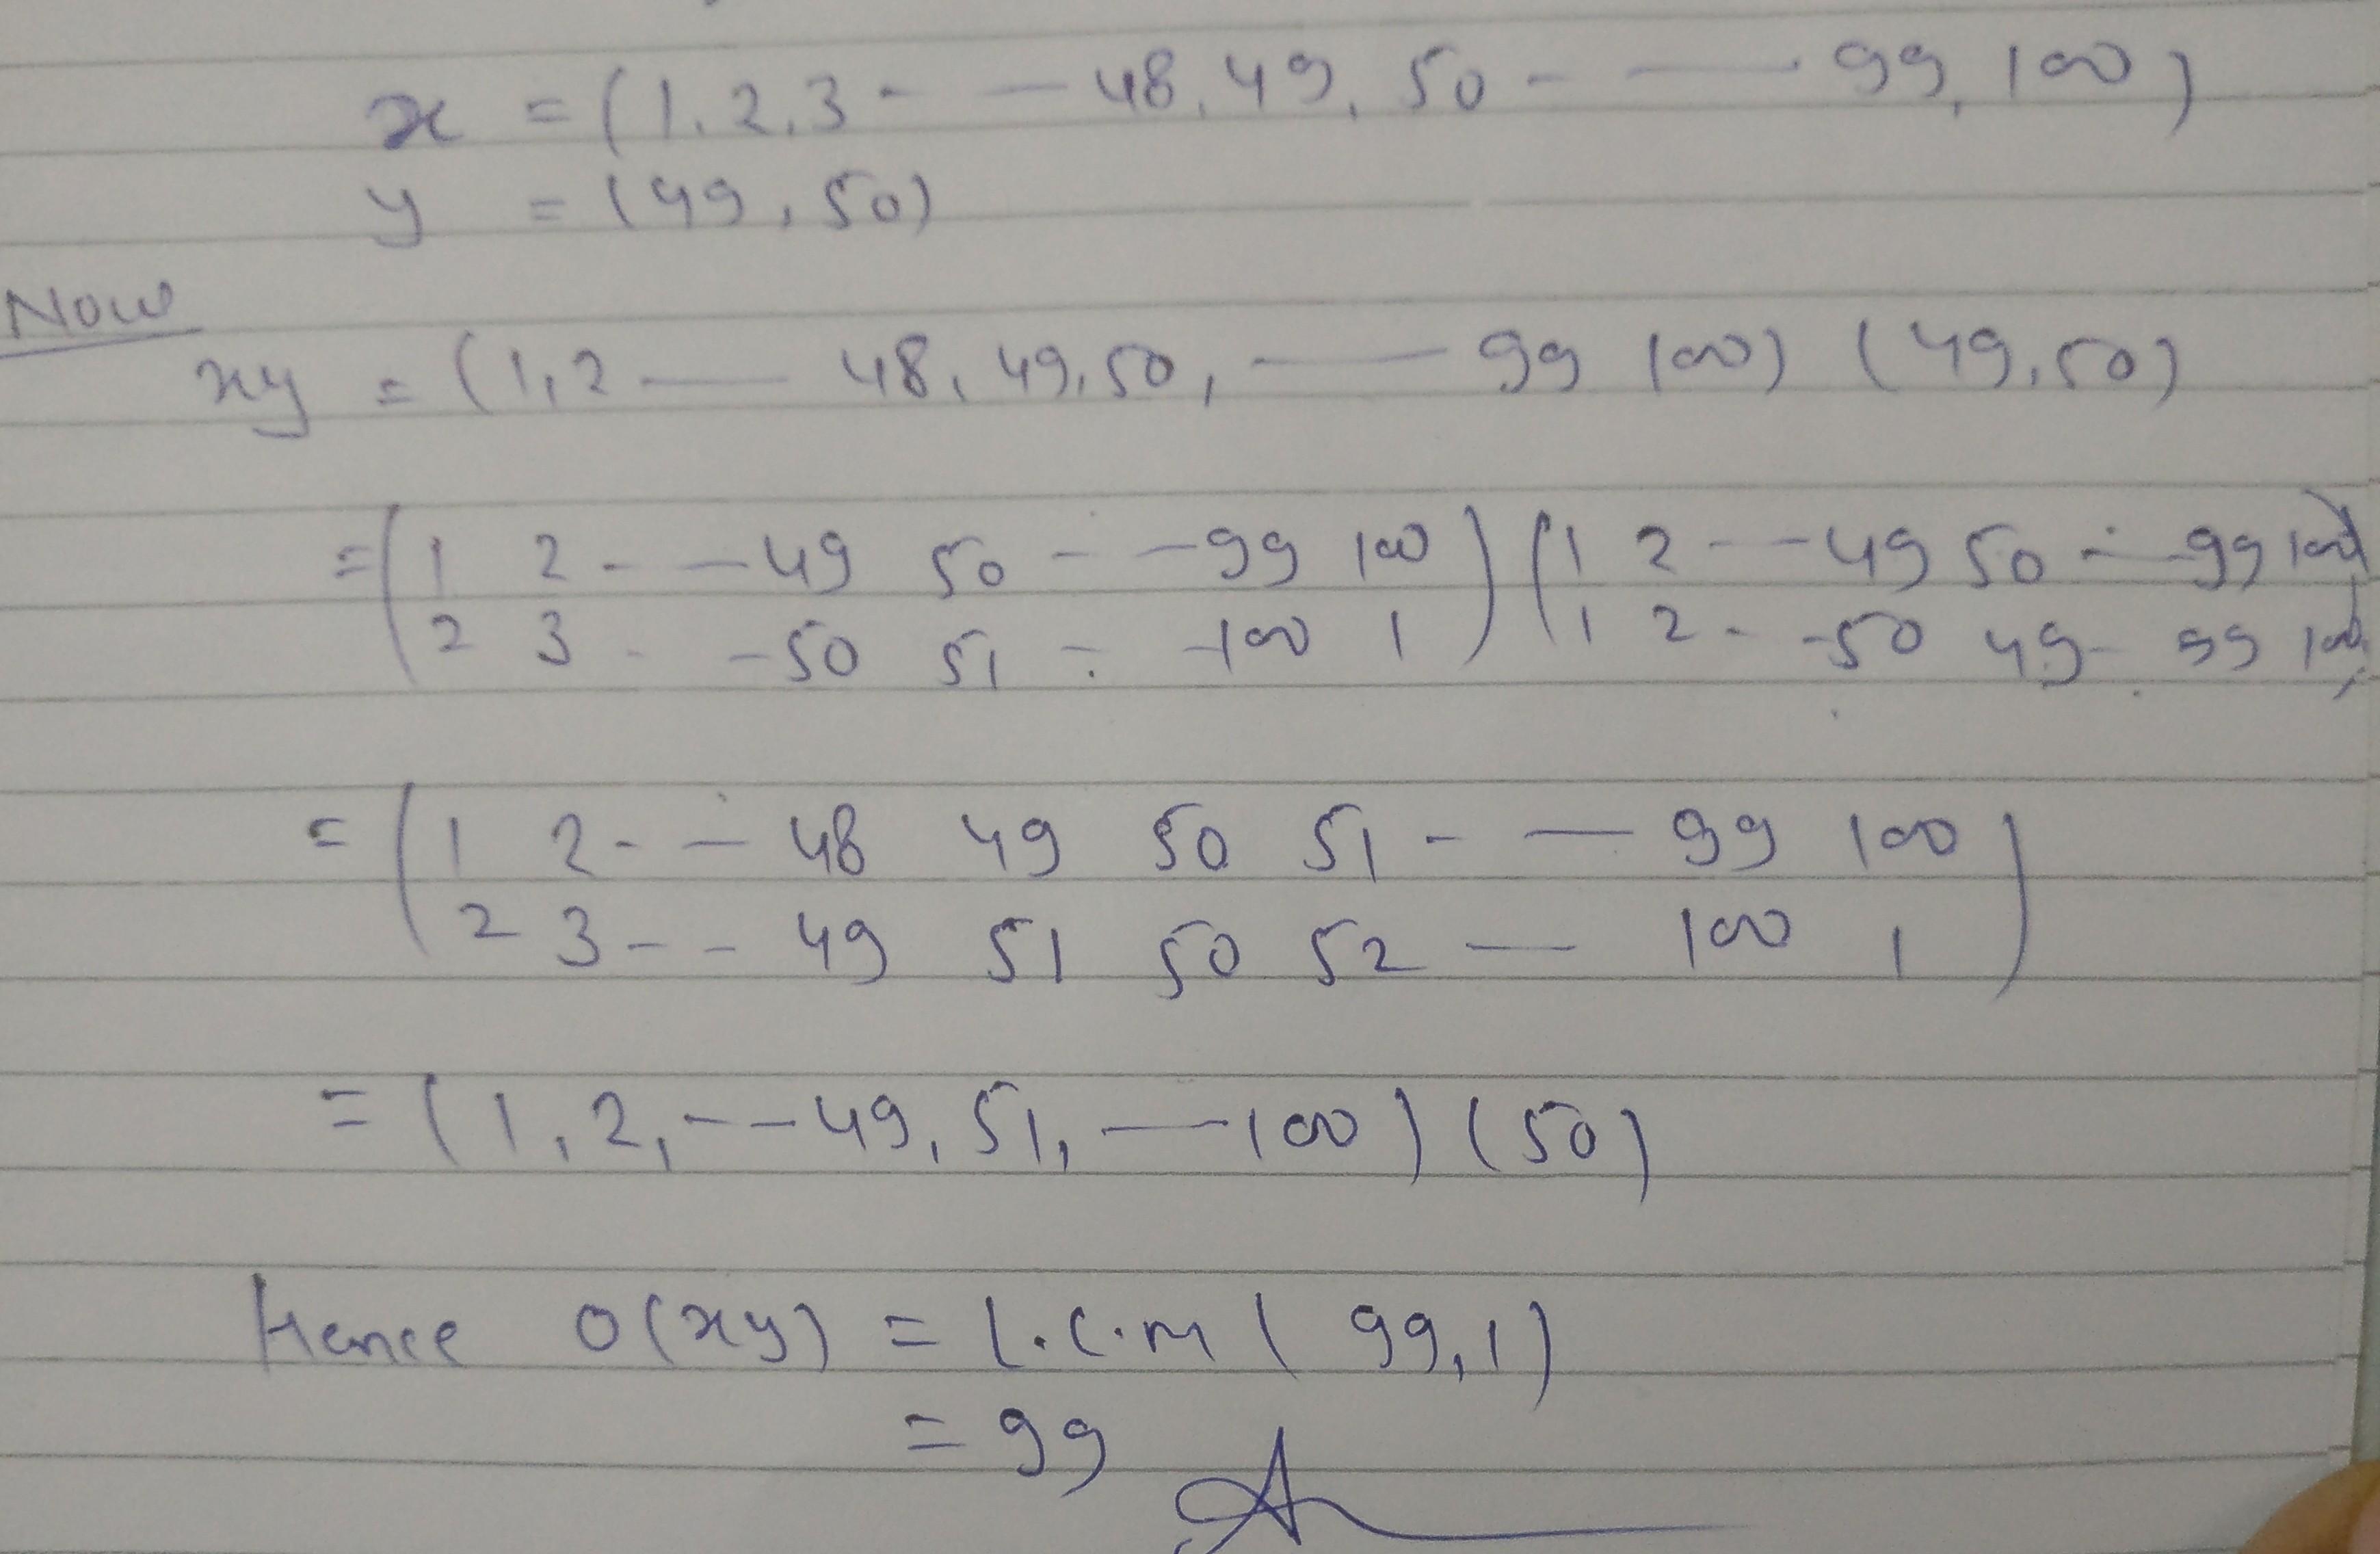 x = (1, 2, 3 - — 48, 49, 50 - — 99, 100)
y = (49, 50)
Now
xy = (1, 2 — 48, 49, 50, — 99 100) (49, 50)
= (1 2 - - 49 50 - - 99 100) (1 2 - - 49 50 - - 99 100)
(2 3 - - 50 51 - - 100 1) (1 2 - - 50 49 - 99 100)
= (1 2 - - 48 49 50 51 - — 99 100)
(2 3 - - 49 51 50 52 — 100 1)
= (1, 2, - - 49, 51, — 100) (50)
Hence O(xy) = L.C.M (99, 1)
= 99